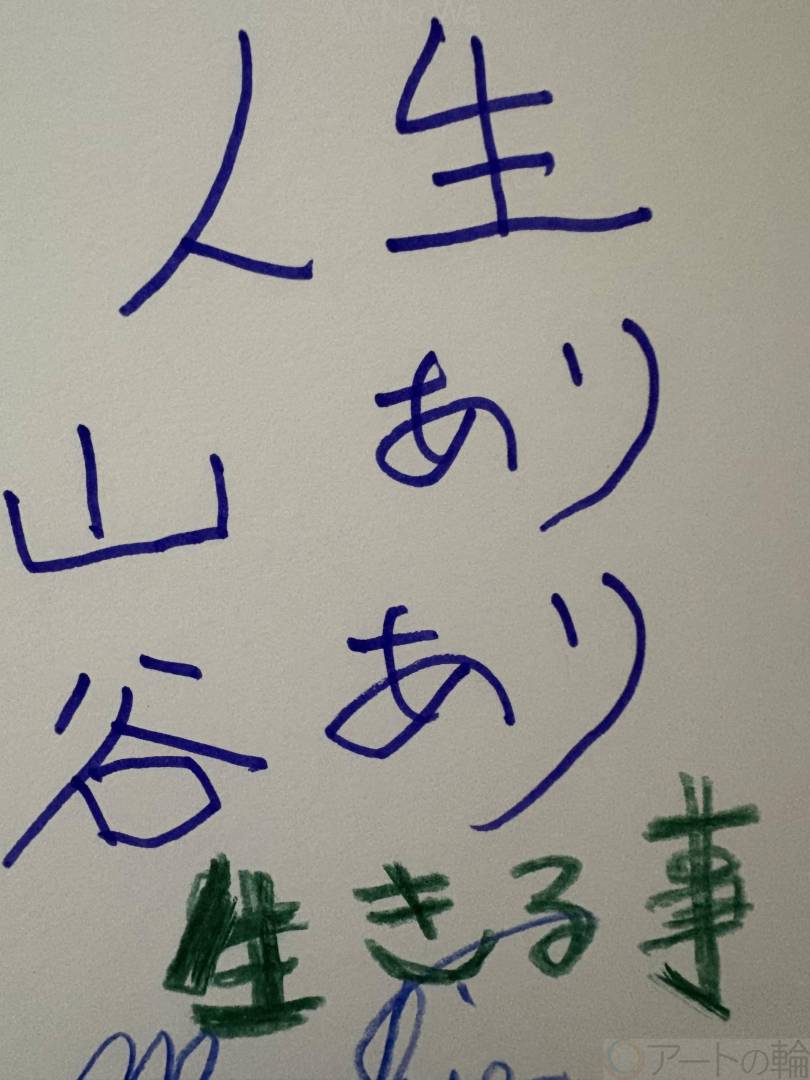 人生
山あり
谷あり
生きる事
アートの輪